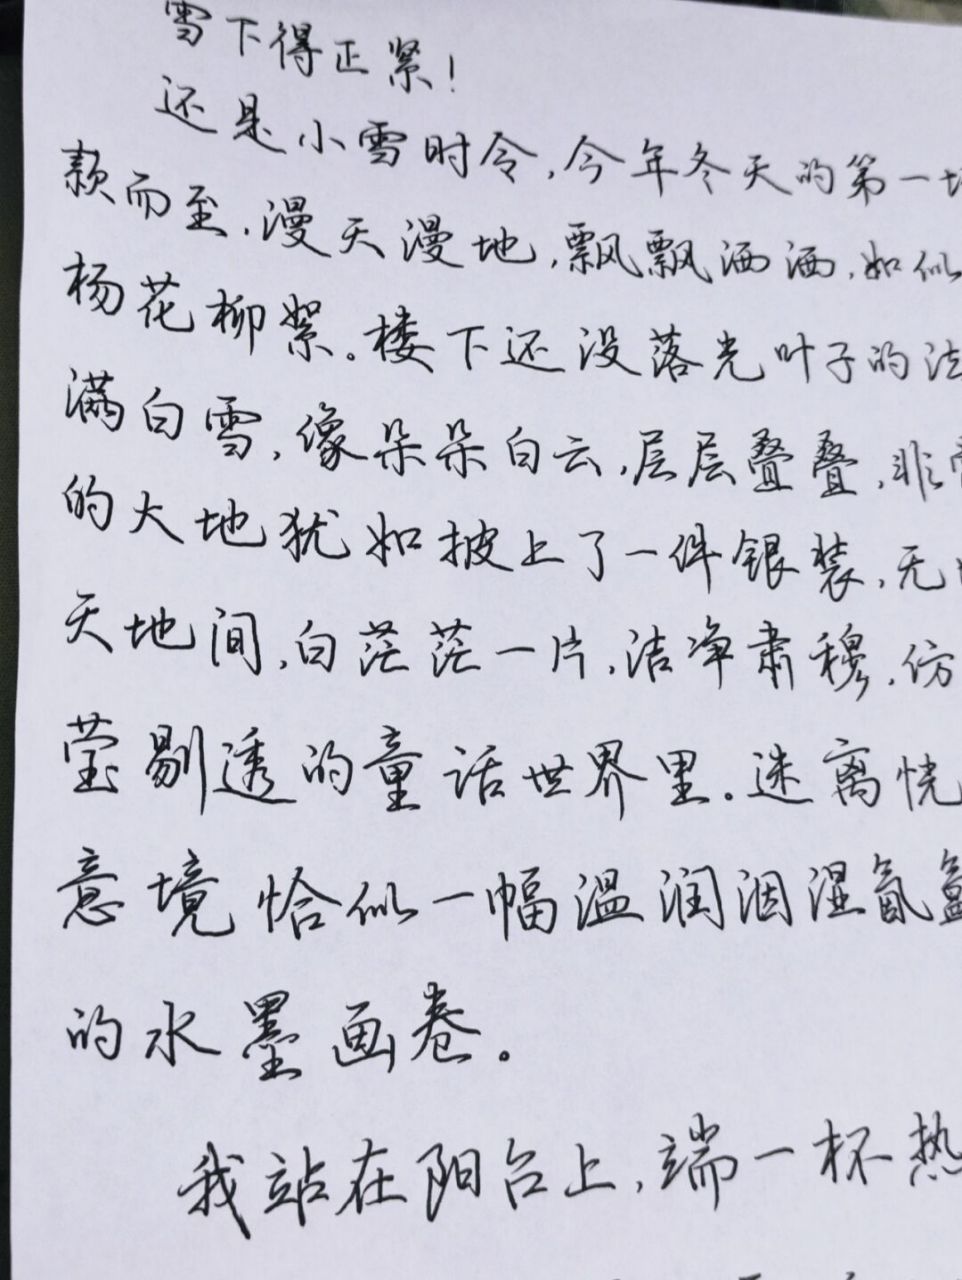 雪下得正紧！
还是小雪时令，今年冬天的第一
款而至，漫天漫地，飘飘洒洒，如似
杨花柳絮。楼下还没落光叶子的法
满白雪，像朵朵白云，层层叠叠，非
的大地犹如披上了一件银装，无
天地间，白茫茫一片，洁净肃穆，仿
莹剔透的童话世界里。迷离恍
意境恰似一幅温润洇湿氤氲
的水墨画卷。
我站在阳台上，端一杯热